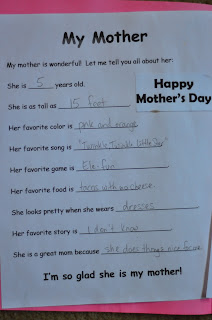 My Mother
My mother is wonderful! Let me tell you all about her:
She is 5 years old.
Happy
Mother's Day
She is as tall as 15 feet
Her favorite color is pink and orange
Her favorite song is "Twinkle Twinkle Little Star"
Her favorite game is
Her favorite food is tacos with no cheese
She looks pretty when she wears dresses
Her favorite story is I don't know
She is a great mom because she does things nice for me.
I'm so glad she is my mother!